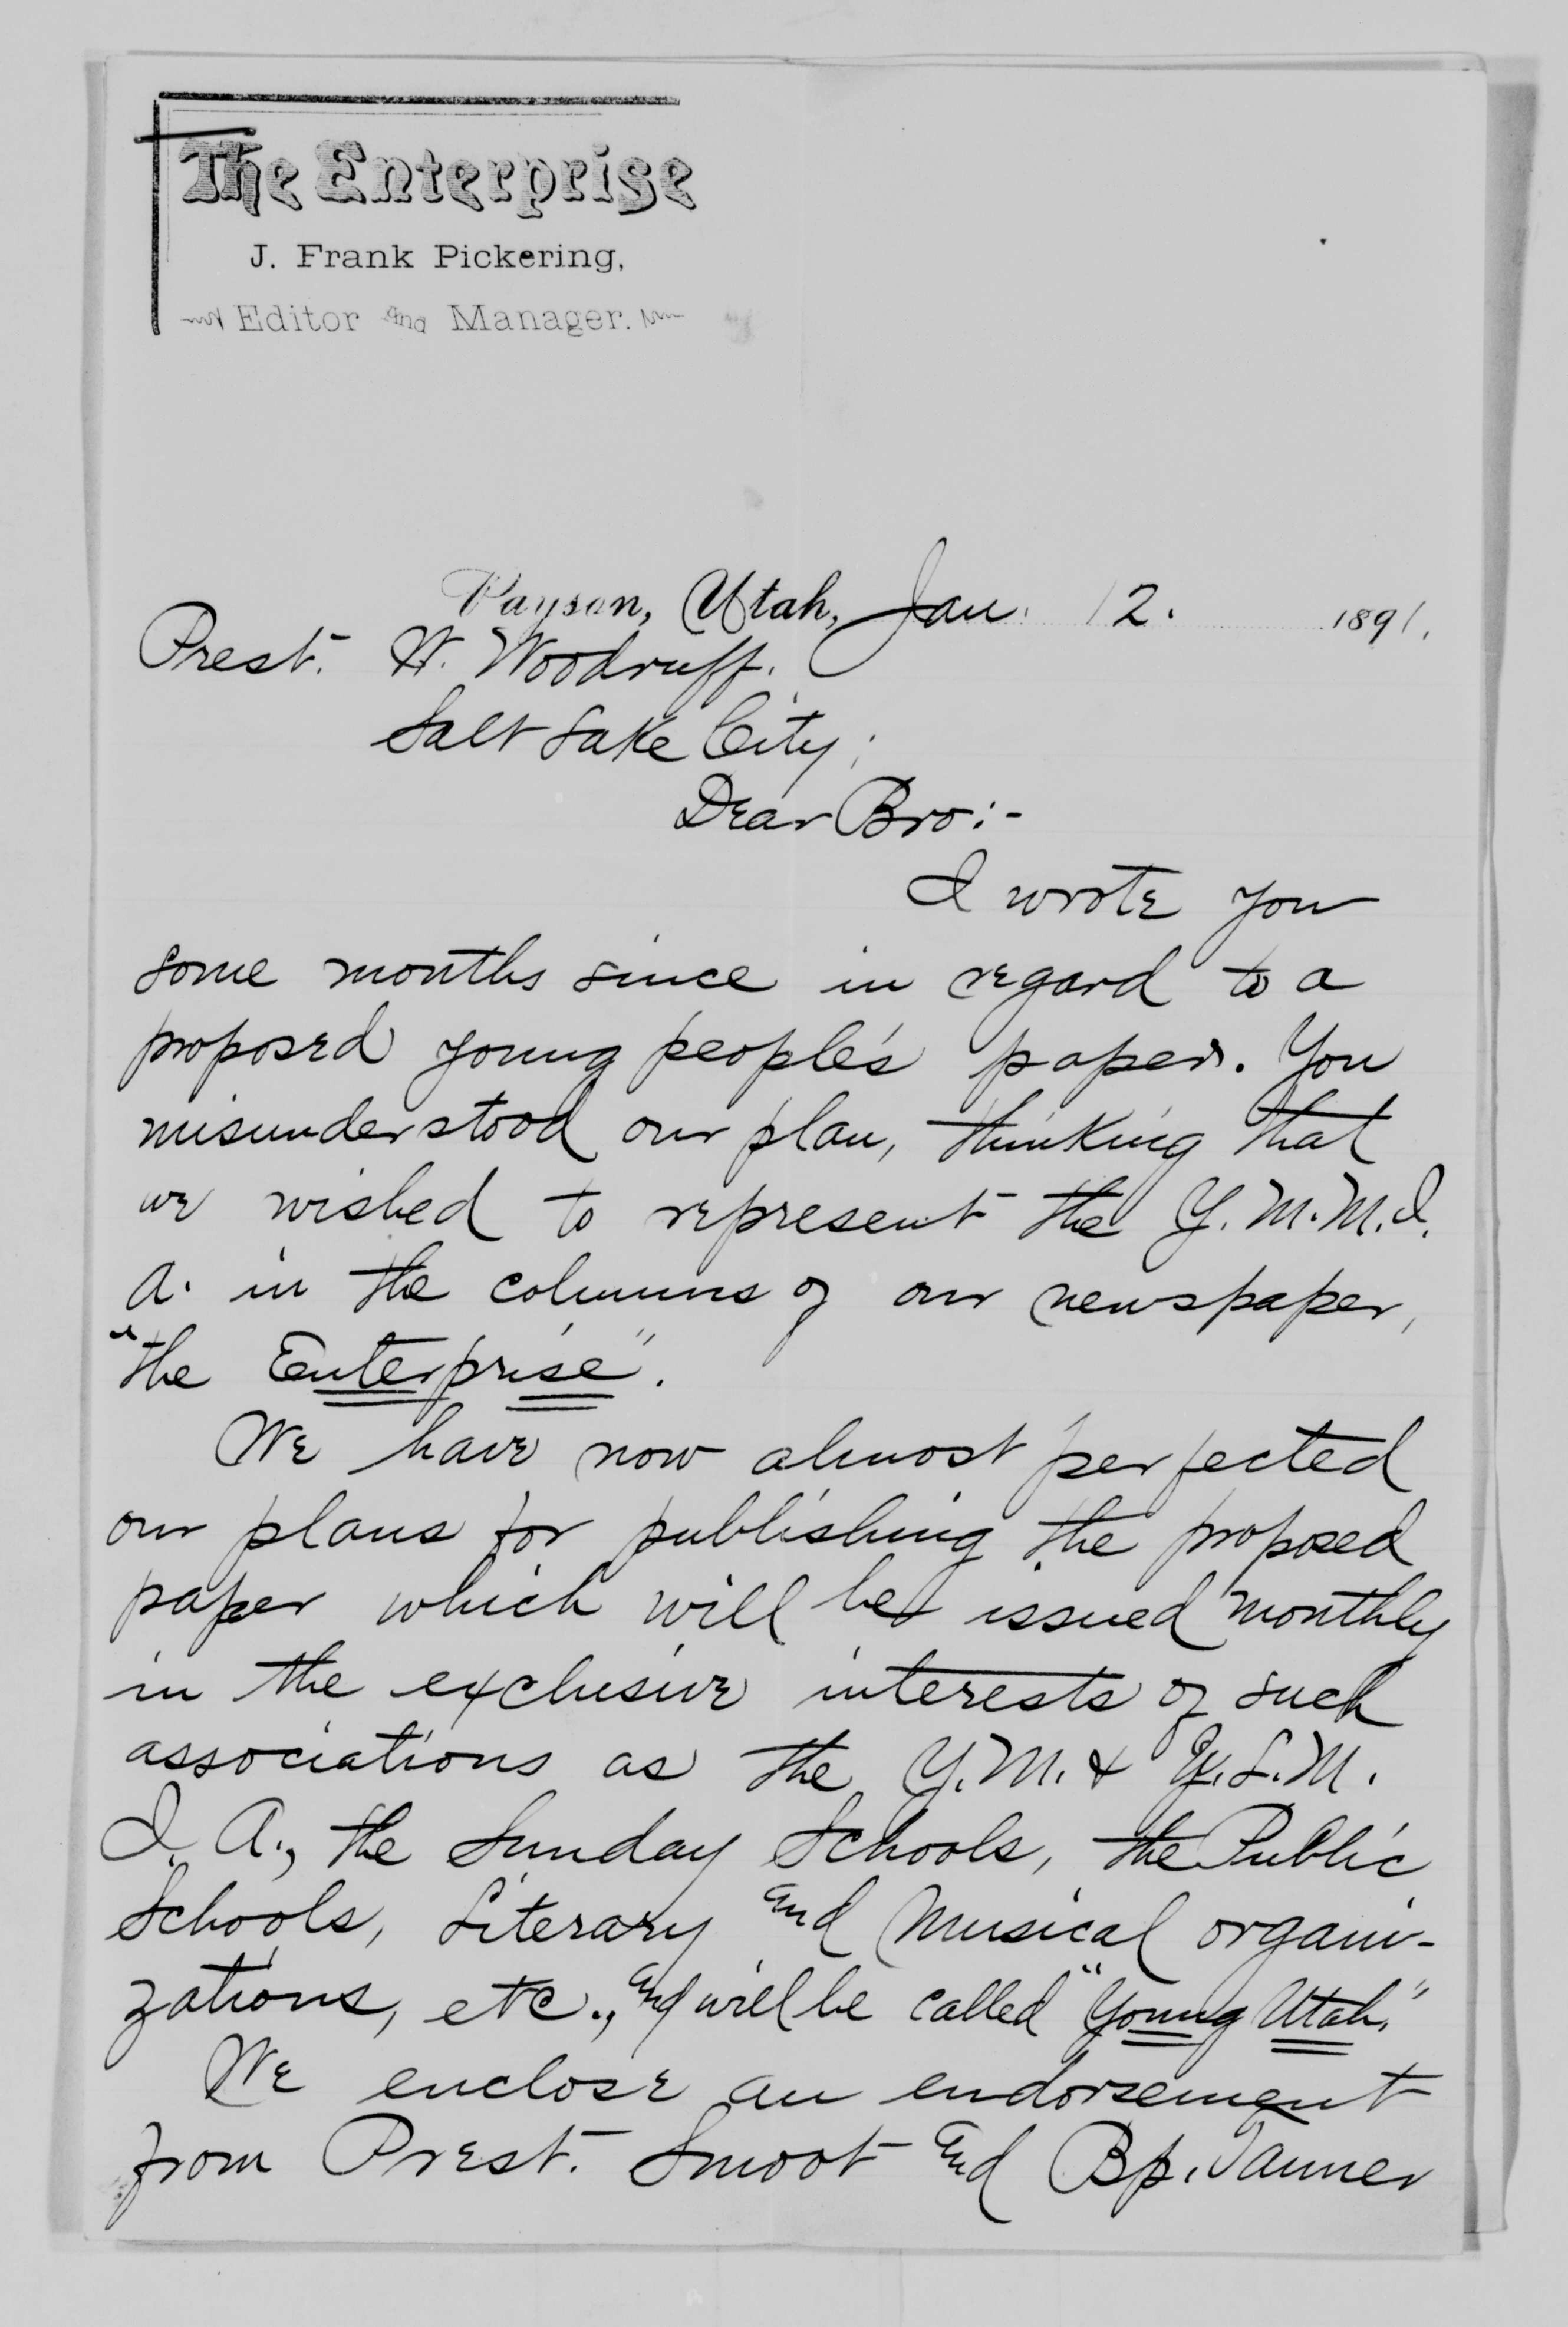 The Enterprise
J. Frank Pickering,
Editor and Manager.
Payson, Utah, Jan. 12. 1891.
Prest. W. Woodruff.
Salt Lake City;
Dear Bro:-
I wrote you
some months since in regard to a
proposed young people's paper. You
misunderstood our plan, thinking that
we wished to represent the Y. M. M. I.
A. in the columns of our newspaper,
"the Enterprise".
We have now almost perfected
our plans for publishing the proposed
paper which will be issued monthly
in the exclusive interests of such
associations as the Y. M. & Y. L. M.
I. A., the Sunday Schools, the Public
Schools, Literary and Musical organi-
zations, etc., and will be called "Young Utah."
We enclose an endorsement
from Prest. Smoot and Bp. Tanner